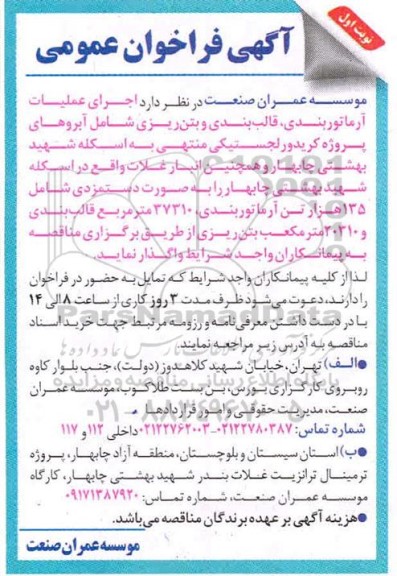 نوبت اول
آگهی فراخوان عمومی
موسسه عمران صنعت در نظر دارد اجرای عملیات
آرماتوربندی، قالب‌بندی و بتن‌ریزی شامل آبروهای
پروژه کریدور لجستیکی منتهی به اسکله شهید
بهشتی چابهار و همچنین انبار غلات واقع در اسکله
شهید بهشتی چابهار را به صورت دستمزدی شامل
۱۳۵هزار تن آرماتوربندی، ۳۷۳۱۰مترمربع قالب‌بندی
و ۲۰۳۱۰مترمکعب بتن‌ریزی از طریق برگزاری مناقصه
به پیمانکاران واجد شرایط واگذار نماید.
لذا از کلیه پیمانکاران واجد شرایط که تمایل به حضور در فراخوان
را دارند، دعوت می‌شود ظرف مدت ۳ روز کاری از ساعت ۸ الی ۱۴
با در دست داشتن معرفی‌نامه و رزومه مرتبط جهت خرید اسناد
مناقصه به آدرس زیر مراجعه نمایند.
●الف) تهران، خیابان شهید کلاهدوز (دولت)، جنب بلوار کاوه
روبروی کارگزاری بورس، بن بست طلاکوب، موسسه عمران
صنعت، مدیریت حقوقی و امور قراردادها
شماره تماس: ۰۲۱۲۲۷۸۰۳۸۷-۰۲۱۲۲۷۶۲۰۰۳ داخلی ۱۱۲ و ۱۱۷
●ب) استان سیستان و بلوچستان، منطقه آزاد چابهار، پروژه
ترمینال ترانزیت غلات بندر شهید بهشتی چابهار، کارگاه
موسسه عمران صنعت، شماره تماس: ۰۹۱۷۱۳۸۷۹۲۰
●هزینه آگهی بر عهده برندگان مناقصه می‌باشد.
موسسه عمران صنعت
ParsNamadData